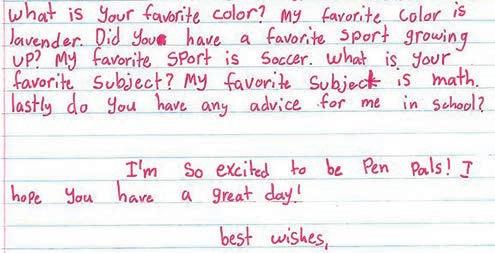 what is your favorite color? My favorite color is
lavender. Did you have a favorite sport growing
up? My favorite sport is soccer. what is your
favorite subject? My favorite subject is math.
lastly do you have any advice for me in school?
I'm so excited to be Pen Pals! I
hope you have a great day!
best wishes,